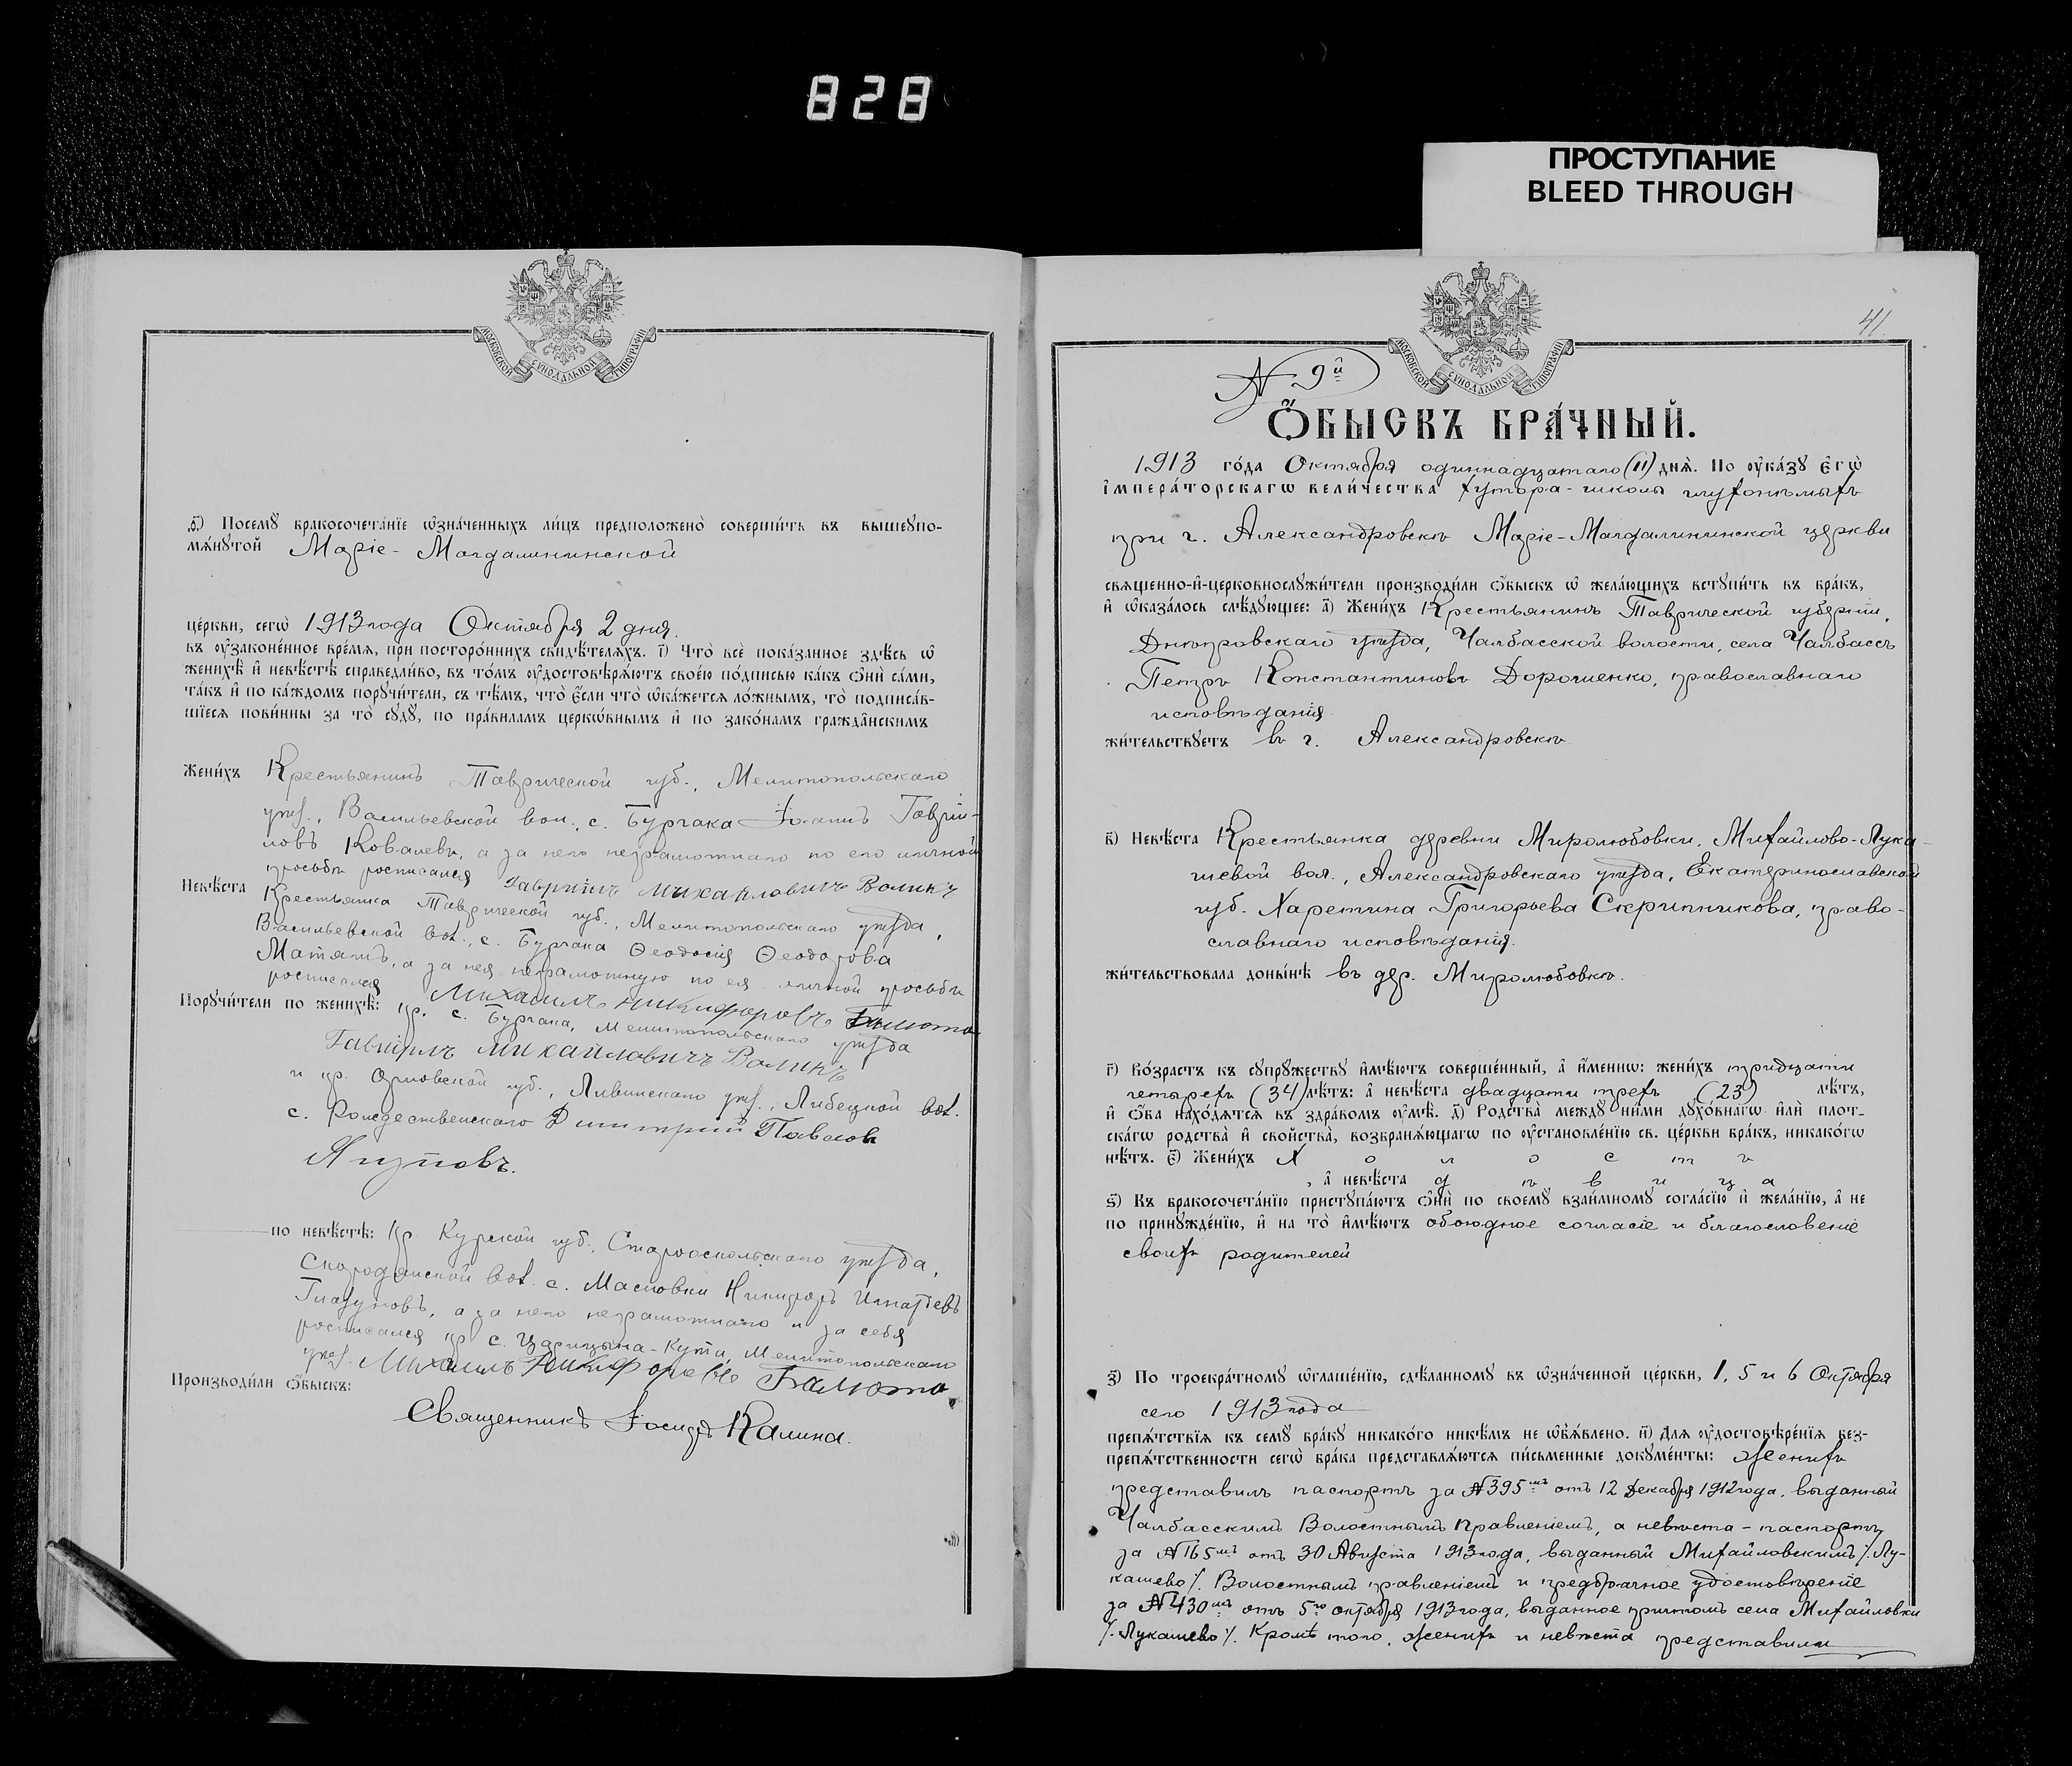 828
ПРОСТУПАНИЕ
BLEED THROUGH
МОСКОВСКОЙ СУНОДАЛЬНОЙ ТИПОГРАФІИ
ѳ҃) Посемꙋ бракосочета́нїе ѡ҆зна́ченныхъ ли́цъ предположено̀ соверши́ть въ вышеꙋпо-
мѧ́нꙋтой Маріе-Магдалининской
це́ркви, сегѡ̀ 1913 года Октября 2 дня.
въ ᲂу҆зако́ненное вре́мѧ, при посторо́ннихъ свидѣ́телѧхъ. і҃) Что̀ всѐ пока́занное здѣ́сь ѡ҆
женихѣ̀ и҆ невѣ́стѣ справедли́во, въ то́мъ ᲂу҆достовѣрѧ́ютъ свое́ю по́дписью ка́къ ѻ҆нѝ са́ми,
та́къ и҆ по ка́ждомъ порꙋчи́тели, съ тѣ́мъ, что̀ є҆́сли что̀ ѡ҆ка́жетсѧ ло́жнымъ, то̀ подписа́в-
шїесѧ пови́нны за то̀ сꙋдꙋ̀, по пра́виламъ церко́внымъ и҆ по зако́намъ гражда́нскимъ
Жени́хъ Крестьянинъ Таврической губ., Мелитопольскаго
уѣз., Васильевской вол., с. Бурчака Іоаннъ Гавріи-
ловъ Ковалевъ, а за него неграмотнаго по его личной
просьбѣ росписался Гавриілъ Михайловичъ Воликъ
Невѣ́ста Крестьянка Таврической губ., Мелитопольскаго уѣзда,
Васильевской вол., с. Бурчака Ѳеодосія Ѳеодорова
Матяшъ, а за нея неграмотную по ея личной просьбѣ
росписался Михаилъ Никифоровъ Балюта
Порꙋчи́тели по женихѣ̀: кр. с. Бурчака, Мелитопольскаго уѣзда
Гавріилъ Михайловичъ Воликъ
и кр. Орловской губ., Ливинскаго уѣз., Липецкой вол.
с. Рождественскаго Димитрий Павловъ
Ягуповъ.
по невѣ́стѣ: Кр Курской губ., Старооскольскаго уѣзда,
Скороданской вол. с. Масловки Никифоръ Игнатіевъ
Глазуновъ, а за него неграмотнаго и за себя
росписался кр с. Царицына-Кута, Мелитопольскаго
уѣз. Михаилъ Никифоревъ Балюта
Производи́ли ѻ҆́быскъ:
Священникъ Іосифъ Калина.
41
МОСКОВСКОЙ СУНОДАЛЬНОЙ ТИПОГРАФІИ
№ 9й
Ѻ҆́БЫСКЪ БРА́ЧНЫЙ.
1913 го́да Октября одиннадцатаго (11) днѧ̀. По ᲂу҆ка́зꙋ Є҆гѡ̀
І҆мпера́торскагѡ Вели́чества Хутора-школы глухонѣмыхъ
при г. Александровскѣ Маріе-Магдалининской церкви
свѧще́нно-и҆-церковнослꙋжи́тели производи́ли ѻ҆́быскъ ѡ҆ жела́ющихъ встꙋпи́ть въ бра́къ,
и҆ ѡ҆каза́лось слѣ́дꙋющее: а҃) Жени́хъ Крестьянинъ Таврической губерніи,
Днѣпровскаго уѣзда, Чалбасской волости, села Чалбассъ
Петръ Константиновъ Дорошенко, православнаго
исповѣданія.
жи́тельствꙋетъ въ г. Александровскѣ
в҃) Невѣ́ста Крестьянка деревни Миролюбовки, Михайлово-Лука-
шевой вол., Александровскаго уѣзда, Екатеринославской
губ. Харетина Григорьева Скрипникова, право-
славнаго исповѣданія.
жи́тельствовала доны́нѣ въ дер. Миролюбовкѣ.
г҃) Во́зрастъ къ сꙋпрꙋ́жествꙋ и҆мѣ́ютъ соверше́нный, а҆ и҆́меннѡ: жени́хъ тридцати
четырехъ (34) лѣ́тъ: а҆ невѣ́ста двадцати трехъ (23) лѣ́тъ,
и҆ ѻ҆́ба нахо́дѧтсѧ въ здра́вомъ ᲂу҆мѣ̀. д҃) Родства̀ междꙋ̀ ни́ми дꙋхо́внагѡ и҆лѝ плот-
ска́гѡ родства̀ и҆ сво́йства, возбранѧ́ющагѡ по ᲂу҆становле́нїю св. це́ркви бра́къ, никако́гѡ
нѣ́тъ. є҃) Жени́хъ Х о л о с т ъ
, а҆ невѣ́ста д ѣ в и ц а
ѕ҃) Къ бракосочета́нїю пристꙋпа́ютъ ѻ҆нѝ по своемꙋ̀ взаи́мномꙋ согла́сїю и҆ жела́нїю, а҆ не
по принꙋжде́нїю, и҆ на то̀ и҆мѣ́ютъ обоюдное согласіе и благословеніе
своихъ родителей
з҃) По троекра́тномꙋ ѡ҆глаше́нїю, сдѣ́ланномꙋ въ ѡ҆зна́ченной це́ркви, 1, 5 и 6 Октября
сего 1913 года
препѧ́тствїѧ къ семꙋ̀ бра́кꙋ никако́го никѣ́мъ не ѡ҆б̾ѧ́влено. и҃) Длѧ ᲂу҆достовѣре́нїѧ без-
препѧ́тственности сегѡ̀ бра́ка представлѧ́ютсѧ пи́сьменные докꙋме́нты: женихъ
представилъ паспортъ за №395мъ отъ 12 Декабря 1912 года, выданный
Чалбасскимъ Волостнымъ Правленіемъ, а невѣста – паспортъ
за №165мъ отъ 30 Августа 1913 года, выданный Михайловскимъ /. Лу-
кашево/. Волостнымъ правленіемъ и предбрачное удостовѣреніе
за №430мъ отъ 5го октября 1913 года, выданное причтомъ села Михайловки
/. Лукашево /. Кромѣ того, женихъ и невѣста представили